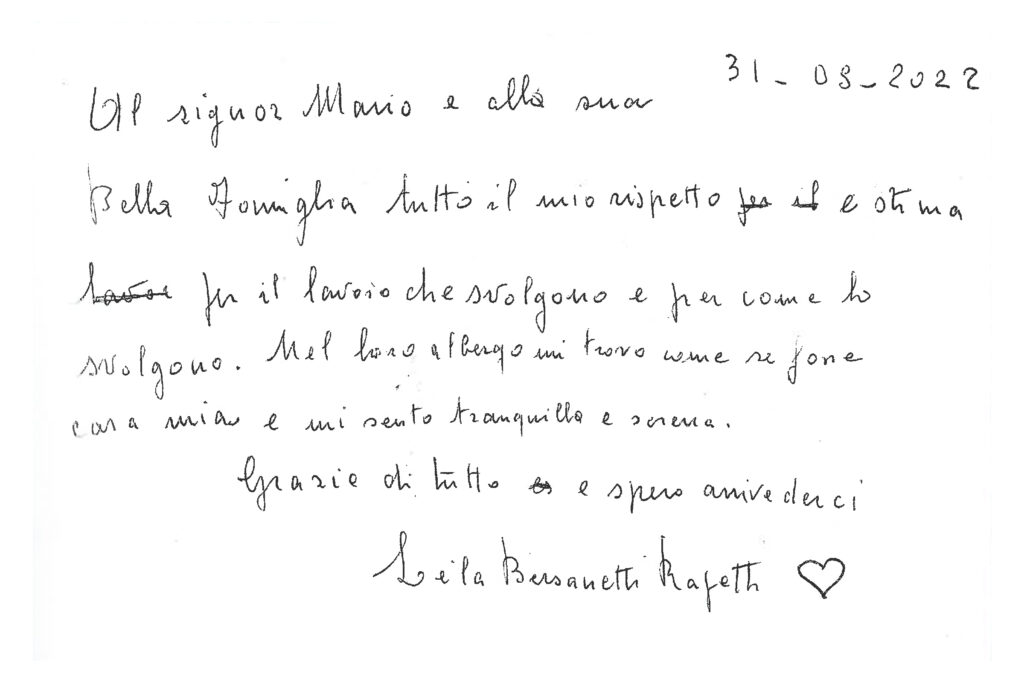 31-08-2022
Al signor Mario e alla sua
Bella Famiglia tutto il mio rispetto per il e stima
lavor per il lavoro che svolgono e per come lo
svolgono. Nel loro albergo mi trovo come se fosse
casa mia e mi sento tranquilla e serena.
Grazie di tutto e spero arrivederci
Leila Bersanetti Rafetti